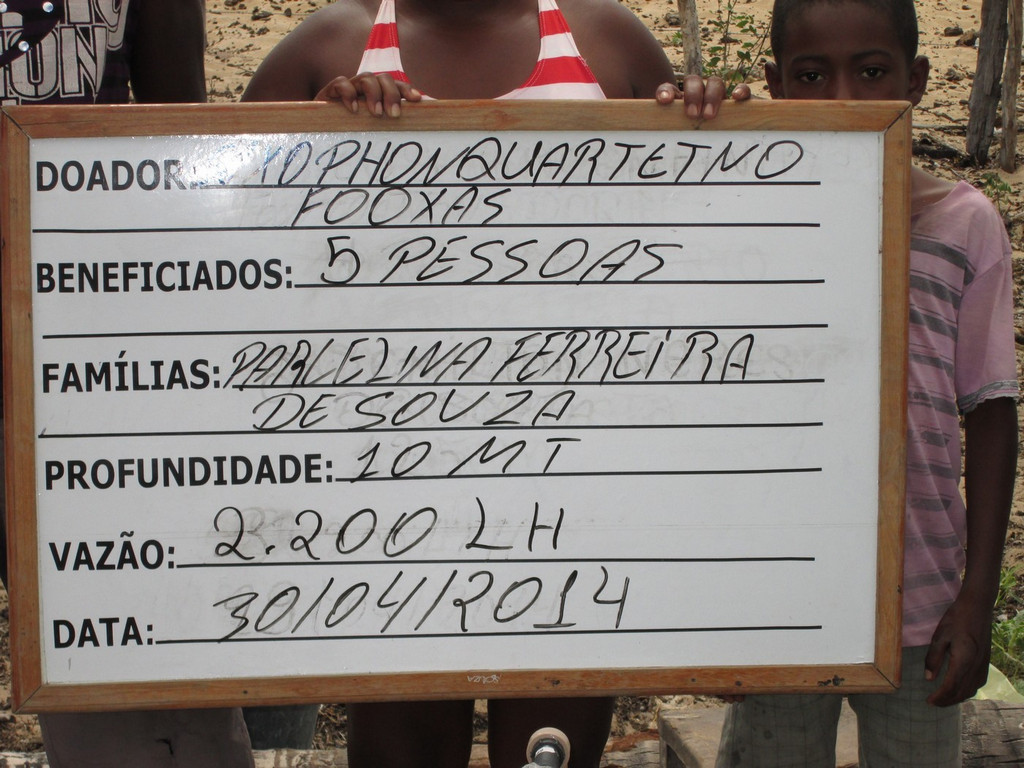 DOADOR: XOPHONQUARTETNO
FOOXAS
BENEFICIADOS: 5 PESSOAS
FAMÍLIAS: PARCELINA FERREIRA
DE SOUZA
PROFUNDIDADE: 10 MT
VAZÃO: 2.200 LH
DATA: 30/04/2014